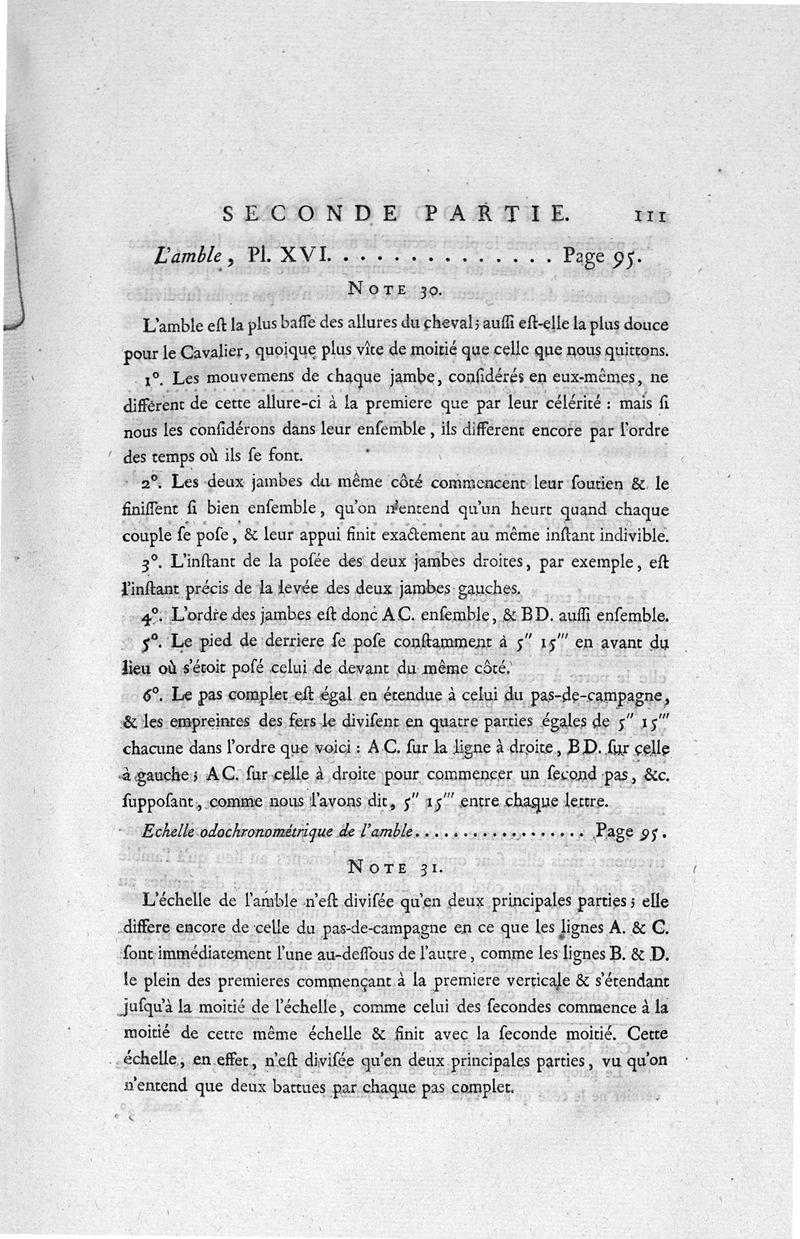 SECONDE PARTIE. 111
L'amble, Pl. XVI. . . . . . . . . . . . . . . Page 95.
NOTE 30.
L'amble eſt la plus baſſe des allures du cheval; auſſi eſt-elle la plus douce
pour le Cavalier, quoique plus vîte de moitié que celle que nous quittons.
1°. Les mouvemens de chaque jambe, conſidérés en eux-mêmes, ne
différent de cette allure-ci à la premiere que par leur célérité : mais ſi
nous les conſidérons dans leur enſemble, ils different encore par l'ordre
des temps où ils ſe font.
2°. Les deux jambes du même côté commencent leur ſoutien & le
finiſſent ſi bien enſemble, qu'on n'entend qu'un heurt quand chaque
couple ſe poſe, & leur appui finit exactement au même inſtant indivible.
3°. L'inſtant de la poſée des deux jambes droites, par exemple, eſt
l'inſtant précis de la levée des deux jambes gauches.
4°. L'ordre des jambes eſt donc AC. enſemble, & BD. auſſi enſemble.
5°. Le pied de derriere ſe poſe conſtamment à 5'' 15''' en avant du
lieu où s'étoit poſé celui de devant du même côté.
6°. Le pas complet eſt égal en étendue à celui du pas-de-campagne,
& les empreintes des fers le diviſent en quatre parties égales de 5'' 15'''
chacune dans l'ordre que voici : AC. ſur la ligne à droite, BD. ſur celle
à gauche; AC. ſur celle à droite pour commencer un ſecond pas, &c.
ſuppoſant, comme nous l'avons dit, 5'' 15''' entre chaque lettre.
Echelle odochronométrique de l'amble. . . . . . . . . . . . . . . . . . Page 95.
NOTE 31.
L'échelle de l'amble n'eſt diviſée qu'en deux principales parties; elle
differe encore de celle du pas-de-campagne en ce que les lignes A. & C.
ſont immédiatement l'une au-deſſous de l'autre, comme les lignes B. & D.
le plein des premieres commençant à la premiere verticale & s'étendant
juſqu'à la moitié de l'échelle, comme celui des ſecondes commence à la
moitié de cette même échelle & finit avec la ſeconde moitié. Cette
échelle, en effet, n'eſt diviſée qu'en deux principales parties, vu qu'on
n'entend que deux battues par chaque pas complet.